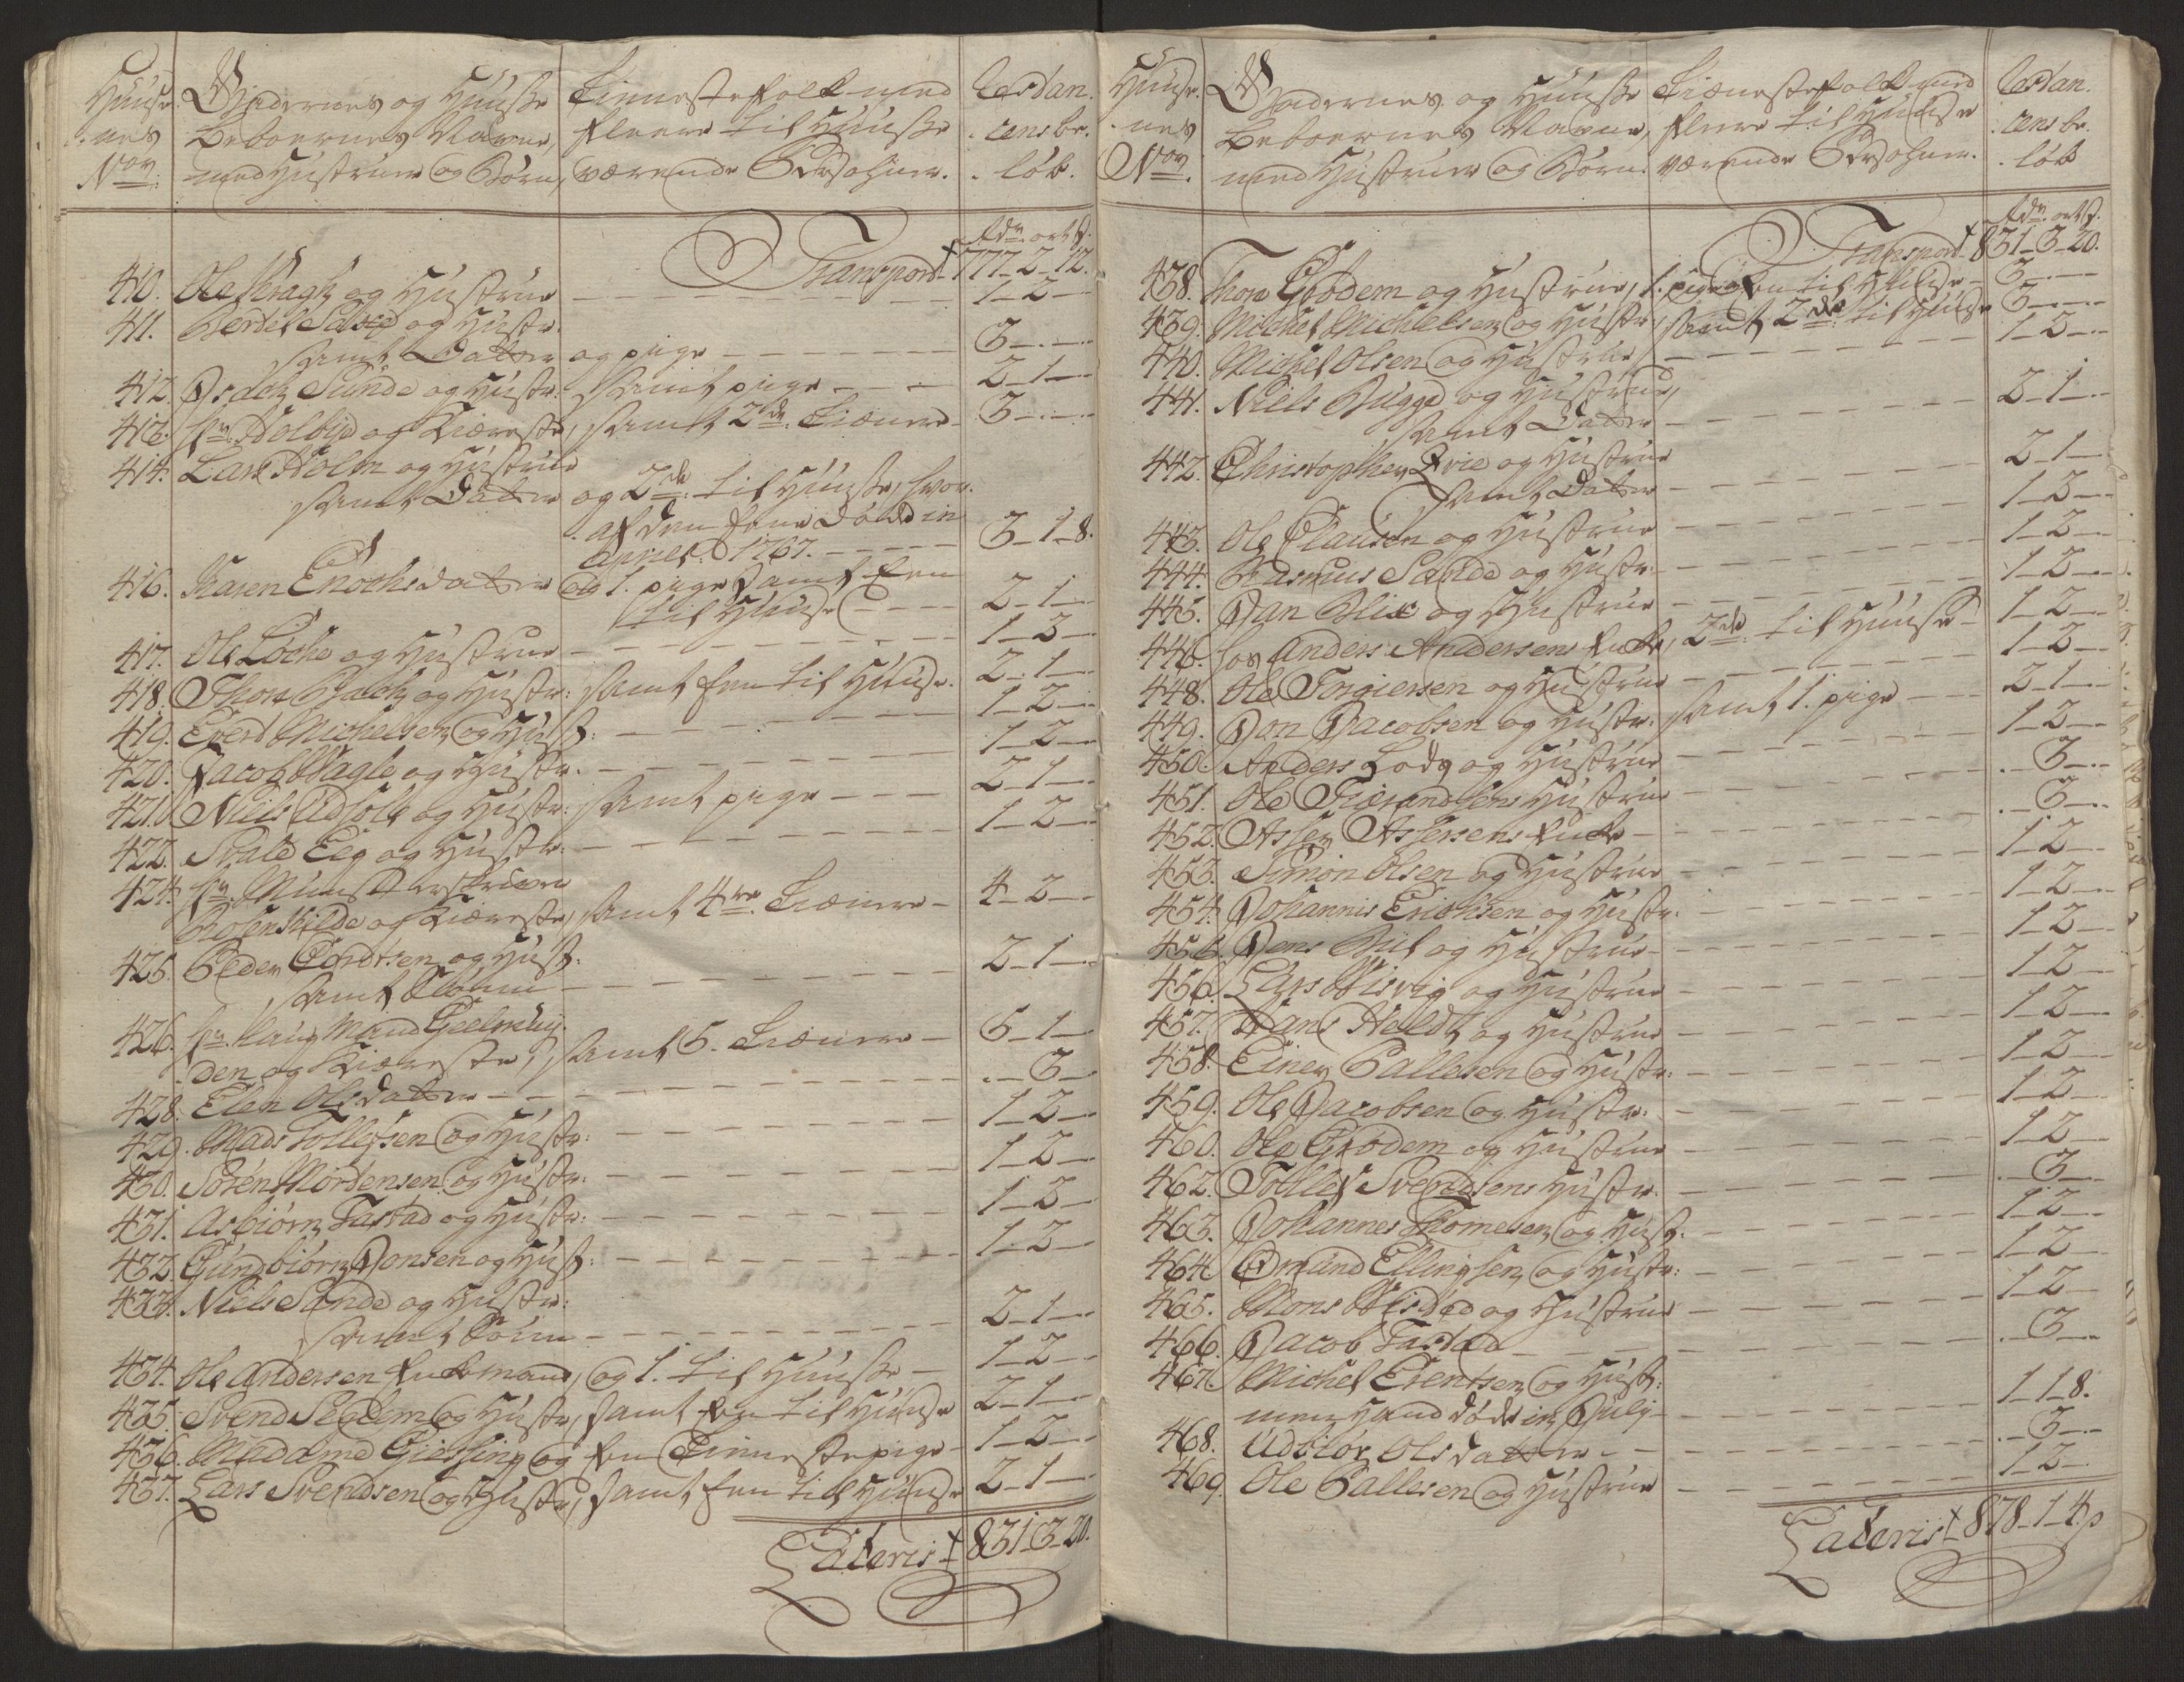 Huuse-
nes
Nov:
Gaardernes og Huusse
Beboernes Navne,
med Hustruer og Børn,
Tienestefolk med
fleere til Huusse
værende Persohner.
Bedan.
cens be.
løb.
Rdr. ort s.
Transport 777-2-12.
410. Ole Kragh og Hustrue - 1-2-
411. Berdel Selsøe og Hustr:
samt Datter og pige - 3-
412. Isach Sunde og Hustr: samt pige - 2-1-
413. hr. Holbye og Kiæreste, samt 2de Tienere - 3-
414. Lars Holm og Hustrue
samt Datter og 2de til Huusse, hvor-
af den eene døde in
April 1767. - 3-1-8.
416. Karen Enochsdatter og 1. pige samt een
til Huuse - 2-1-
417. Ole Locke og Hustrue - 1-2-
418. Thore Bach og Hustr: samt een til Huuse. 2-1-
419. Evert Michelsen og Hust: - 1-2-
420. Jacob Vagle og Hustr: - 1-2-
421. Niels Udsole og Hustr: samt pige - 2-1-
422. Svale Eeg og Hustr: - 1-2-
424. hr. Mynsterskriver
Rosenkilde og Kiæreste, samt 4re Tienere - 4-2-
425. Peder Cordtsen og Hust:
samt Sønn - 2-1-
426. hr. Krigsmand Geelmuy-
den og Kiæreste, samt 5. Tienere - 5-1-
428. Elen Olsdatter - 3-
429. Mads Tollefsen og Hustr: - 1-2-
430. Soren Mortensen og Hustr: - 1-2-
431. Asbiørn Tastad og Hustr: - 1-2-
432. Gundbiørn Jonsen og Hust: - 1-2-
433. Niels Sande og Hustr:
samt Sønn - 2-1-
434. Ole Andersen Enkemand, og 1. til Huusse - 1-2-
435. Svend Seglem og Hustr, samt een til Huuse 2-1-
436. Madame Giessing og een Tienestepige - 1-2-
437. Lars Svendsen og Hustr, samt een til Huuse 2-1-
Lateris 831-3-20.
Huuse-
nes
Nov.
Gaardernes og Huusse
Beboernes Navne,
med Hustruer og Børn.
Tienestefolk med
fleere til Huuse
værende Persohner.
Bedan.
cens be.
løb
Rdr. ort s.
Transport 831-3-20.
438. Thore Grodem og Hustrue, 1. pige og een til Huuse - 3-
439. Michel Michelsen og Hustr, samt 2de til Huuse 3-
440. Michel Olsen og Hustrue, - 1-2-
441. Niels Bugge og Hustrue,
samt Datter - 2-1-
442. Christopher Qvie og Hustrue
samt Datter - 2-1-
443. Ole Clausen og Hustrue - 1-2-
444. Rasmus Sande og Hustr: - 1-2-
445. Jan Blix og Hustrue - 1-2-
446. hos Anders Andersens Enke, 2de til Huuse - 1-2-
448. Ole Torgiersen og Hustrue - 1-2-
449. Jon Jacobsen og Hustr: samt 1. pige - 2-1-
450. Anders Lode og Hustrue - 1-2-
451. Ole Tiærandsens Hustrue - 3-
452. Asser Assersens Enke - 3-
453. Simon Olsen og Hustrue - 1-2-
454. Johannis Erichsen og Hustr: - 1-2-
455. Jens Bill og Hustrue - 1-2-
456. Lars Wisvig og Hustrue - 1-2-
457. Hans Heldt og Hustrue - 1-2-
458. Einer Pallesen og Hustr: - 1-2-
459. Ole Jacobsen og Hustr: - 1-2-
460. Ole Grodem og Hustrue - 1-2-
462. Tollef Svendsens Hustr: - 3-
463. Johannes Thomesen og Hust: - 1-2-
464. Omund Ellingsen og Hustr: - 1-2-
465. Mons Wisted og Hustrue - 1-2-
466. Jacob Tasted - 3-
467. Michel Evertsen og Hust:
men hand døde in July - 1-1-8.
468. Udbiør Olsdatter - 3-
469. Ole Pallesen og Hustrue - 1-2-
Lateris 878-1-4.